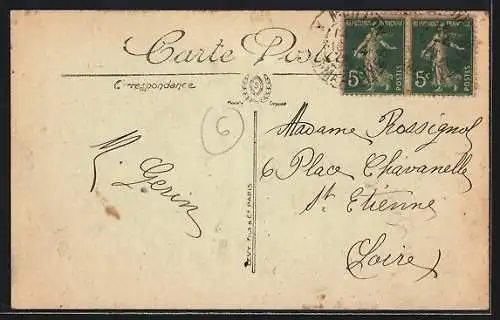 Carte Postale
Correspondence
Marque Déposée
REPUBLIQUE FRANÇAISE
5c
POSTES
REPUBLIQUE FRANÇAISE
5c
POSTES
6
M. Gerin
LEVY FILS & Cie PARIS
Madame Rossignol
6 Place Chavanelle
St Etienne
Loire